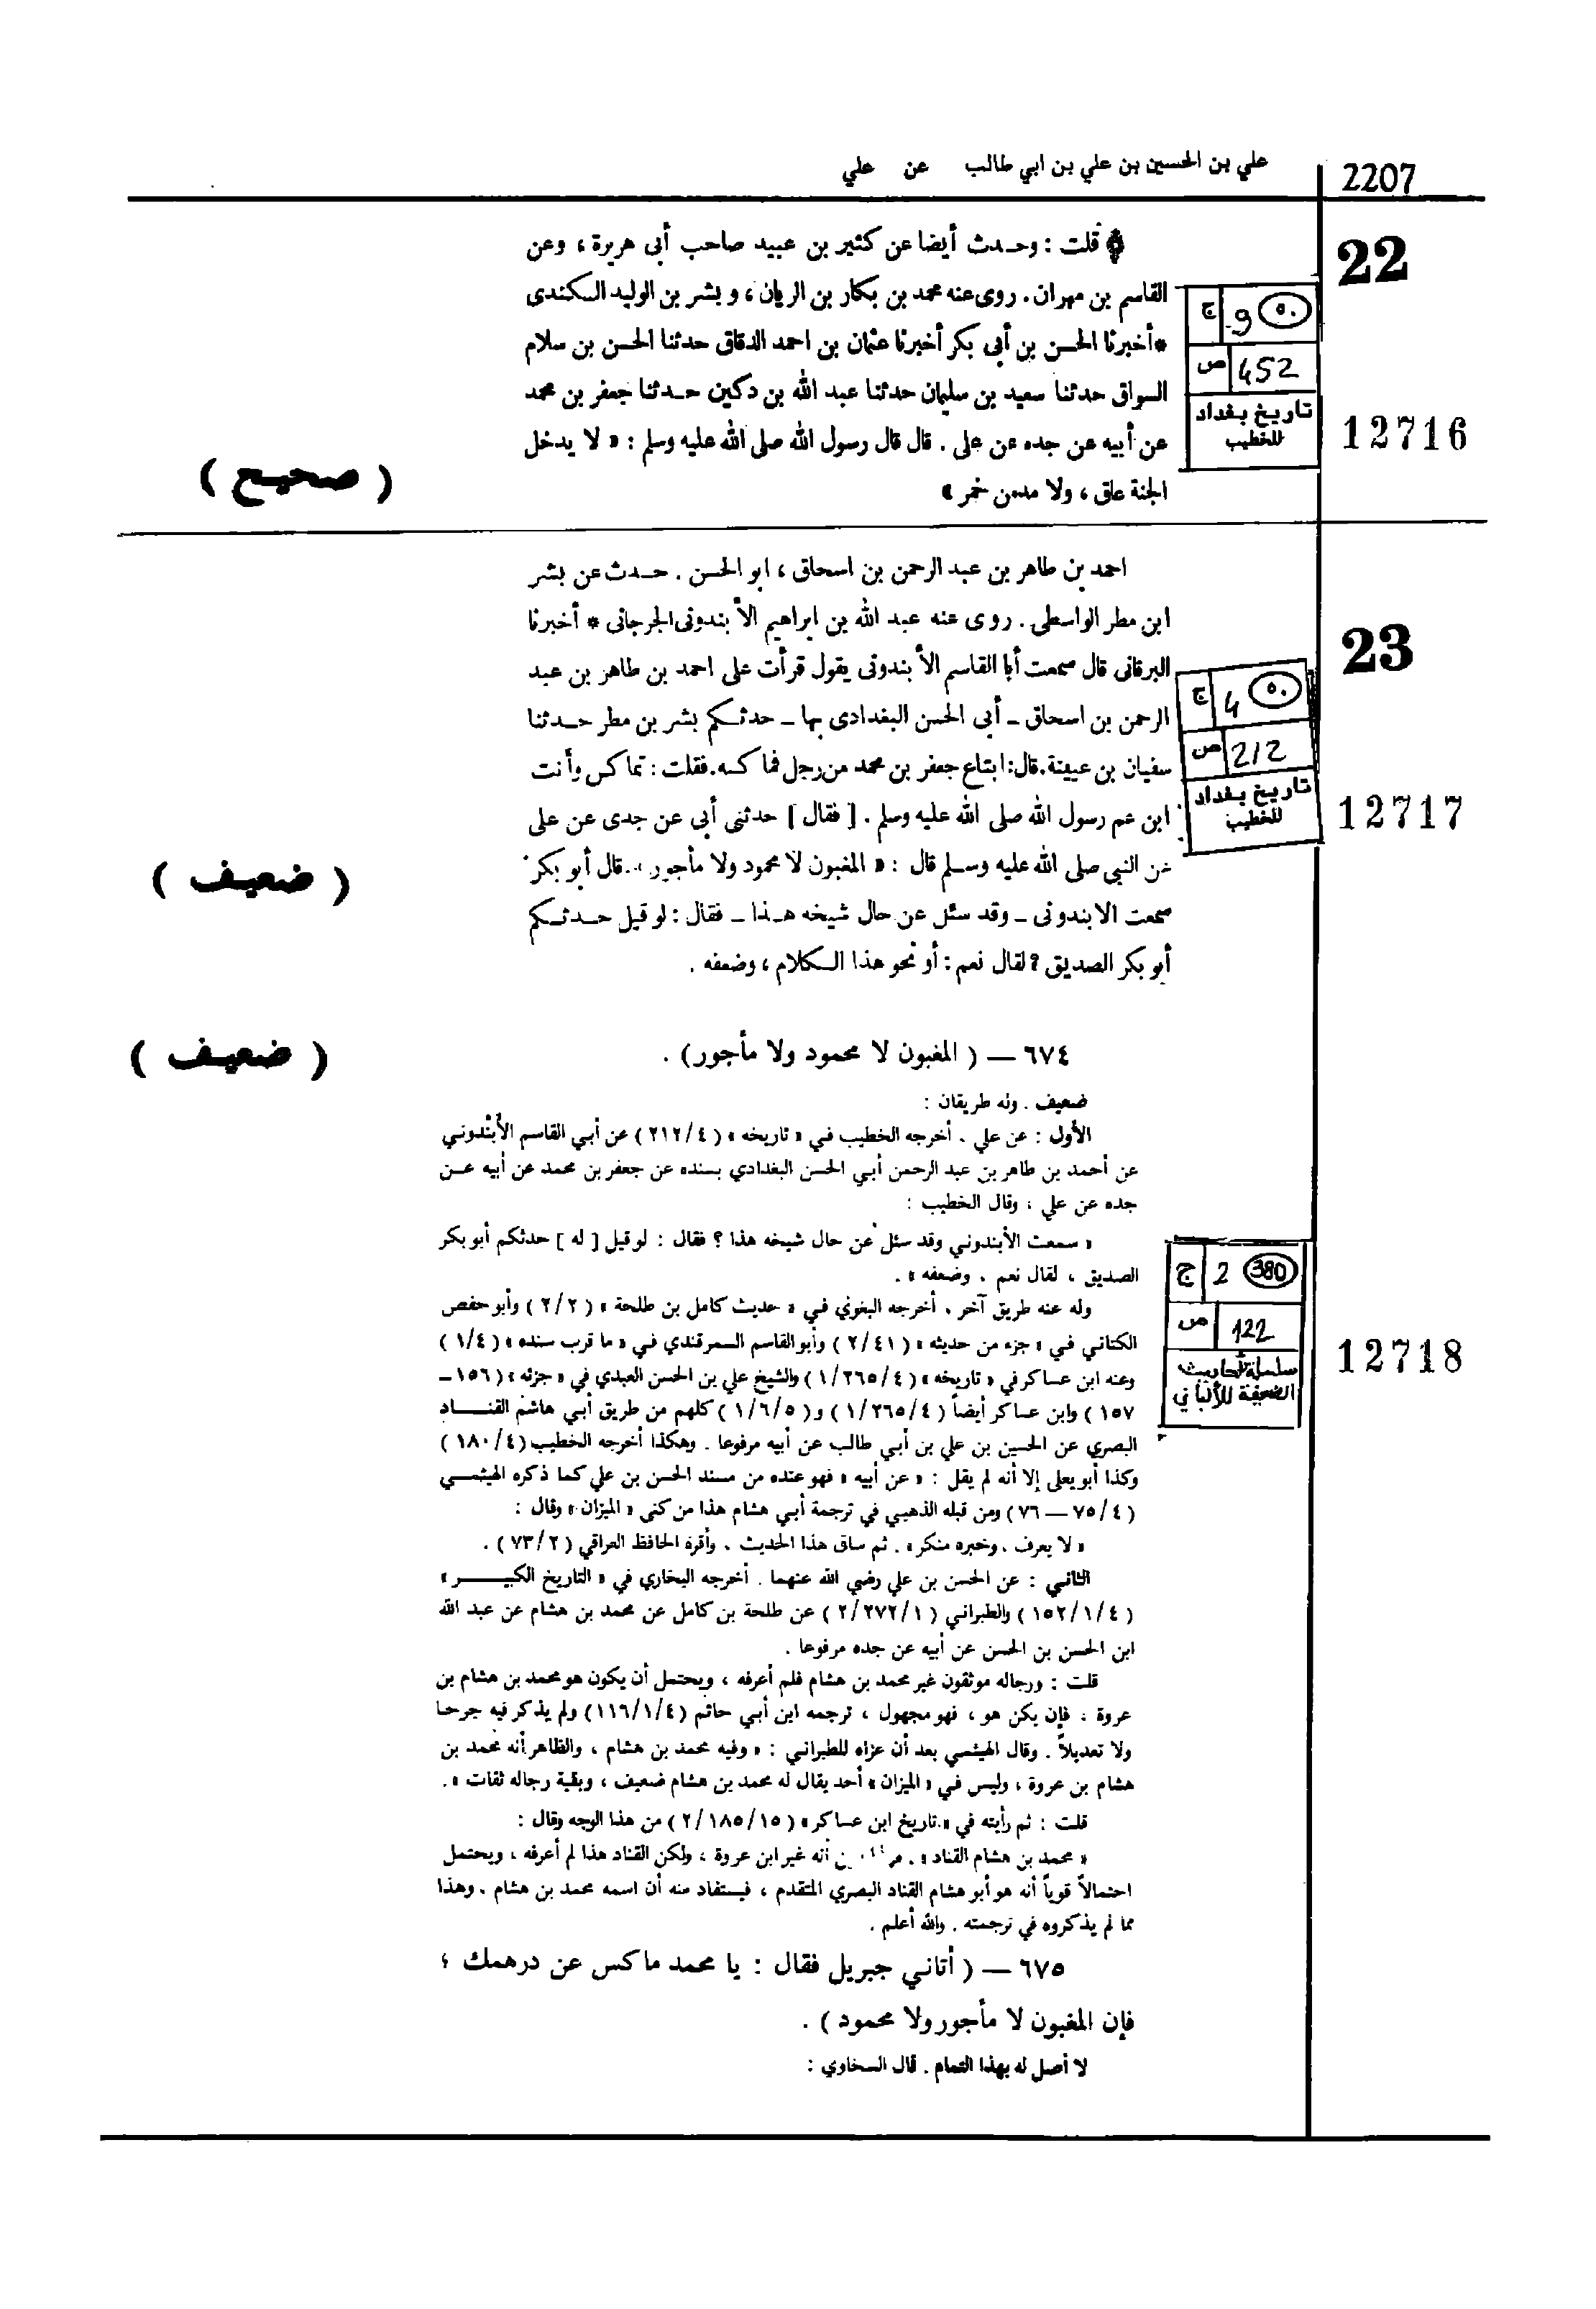 2207
علي بن الحسين بن علي بن ابي طالب عن علي
22
قلت : وحدث أيضا عن كثير بن عبيد صاحب أبى هريرة ، وعن
القاسم بن مهران . روى عنه محمد بن بكار بن الريان ، و بشر بن الوليد الكندى
*أخبرنا الحسن بن أبى بكر أخبرنا عثمان بن احمد الدقاق حدثنا الحسن بن سلام
السواق حدثنا سعيد بن سليمان حدثنا عبد الله بن دكين حدثنا جعفر بن محمد
عن أبيه عن جده عن على . قال قال رسول الله صلى الله عليه وسلم : « لا يدخل
الجنة عاق ، ولا مدمن خمر »
ج 9 ٥٠
ص 452
تاريخ بغداد
للخطيب
12716
( صحيح )
23
احمد بن طاهر بن عبد الرحمن بن اسحاق ، ابو الحسن . حدث عن بشر
ابن مطر الواسطى . روى عنه عبد الله بن ابراهيم الأبندونى الجرجانى * أخبرنا
البرقانى قال سمعت أبا القاسم الأبندونى يقول قرأت على احمد بن طاهر بن عبد
الرحمن بن اسحاق ـ أبى الحسن البغدادى بها ـ حدثكم بشر بن مطر حدثنا
سفيان بن عيينة . قال : ابتاع جعفر بن محمد من رجل فماكسه . فقلت : تماكس وأنت
ابن عم رسول الله صلى الله عليه وسلم . [ فقال ] حدثنى أبى عن جدى عن على
عن النبى صلى الله عليه وسلم قال : « المغبون لا محمود ولا مأجور » . قال أبو بكر
سمعت الابندونى ـ وقد سئل عن حال شيخه هذا ـ فقال : لو قيل حدثكم
أبو بكر الصديق ؟ لقال نعم : أو نحو هذا الكلام ، وضعفه .
ج 4
ص 212
تاريخ بغداد
للخطيب
12717
( ضعيف )
٦٧٤ — ( المغبون لا محمود ولا مأجور) .
( ضعيف )
ضعيف . وله طريقان :
الأول : عن علي . أخرجه الخطيب في « تاريخه » ( ٤/ ٢١٢ ) عن أبي القاسم الأبَنْدوني
عن أحمد بن طاهر بن عبد الرحمن أبي الحسن البغدادي بسنده عن جعفر بن محمد عن أبيه عن
جده عن علي ، وقال الخطيب :
« سمعت الأبندوني وقد سئل عن حال شيخه هذا ؟ فقال : لو قيل [ له ] حدثكم أبو بكر
الصديق ، لقال نعم . وضعفه » .
وله عنه طريق آخر . أخرجه البغوي في « حديث كامل بن طلحة » ( ٢/٢ ) وأبو حفص
الكتاني في « جزء من حديثه » ( ٢/٤١ ) وأبو القاسم السمرقندي في « ما قرب سنده » ( ١/٤ )
وعنه ابن عساكر في « تاريخه » ( ٤/ ٢٦٥/ ١ ) والشيخ علي بن الحسن العبدي في « جزئه » ( ١٥٦ ـ
١٥٧ ) وابن عساكر أيضاً ( ٤/ ٢٦٥/ ١ ) و ( ٥/ ٦/ ١ ) كلهم من طريق أبي هاشم القناد
البصري عن الحسين بن علي بن أبي طالب عن أبيه مرفوعا . وهكذا أخرجه الخطيب ( ٤/ ١٨٠ )
وكذا أبو يعلى إلا أنه لم يقل : « عن أبيه » فهو عنده من مسند الحسن بن علي كما ذكره الهيثمي
( ٤/ ٧٥ — ٧٦ ) ومن قبله الذهبي في ترجمة أبي هشام هذا من كنى « الميزان » وقال :
« لا يعرف ، وخبره منكر » . ثم ساق هذا الحديث . وأقره الحافظ العراقي ( ٢/ ٧٣ ) .
الثاني : عن الحسن بن علي رضي الله عنهما . أخرجه البخاري في « التاريخ الكبير »
( ٤/ ١/ ١٥٢ ) والطبراني ( ١/ ٢٧٢/ ٢ ) عن طلحة بن كامل عن محمد بن هشام عن عبد الله
ابن الحسن بن الحسن عن أبيه عن جده مرفوعا .
قلت : ورجاله موثقون غير محمد بن هشام فلم أعرفه ، ويحتمل أن يكون هو محمد بن هشام بن
عروة ، فإن يكن هو ، فهو مجهول ، ترجمه ابن أبي حاتم ( ٤/ ١/ ١١٦ ) ولم يذكر فيه جرحا
ولا تعديلاً . وقال الهيثمي بعد أن عزاه للطبراني : « وفيه محمد بن هشام ، والظاهر أنه محمد بن
هشام بن عروة ، وليس في « الميزان » أحد يقال له محمد بن هشام ضعيف ، وبقية رجاله ثقات » .
قلت : ثم رأيته في « تاريخ ابن عساكر » ( ١٥/ ١٨٥/ ٢ ) من هذا الوجه وقال :
« محمد بن هشام القناد » . أنه غير ابن عروة ، ولكن القناد هذا لم أعرفه ، ويحتمل
احتمالاً قوياً أنه هو أبو هشام القناد البصري المتقدم ، فيستفاد منه أن اسمه محمد بن هشام . وهذا
مما لم يذكروه في ترجمته . والله أعلم .
ج 2 380
ص 122
سلسلة أحاديث
الضعيفة للألباني
12718
٦٧٥ — ( أتاني جبريل فقال : يا محمد ماكس عن درهمك ؛
فإن المغبون لا مأجور ولا محمود ) .
لا أصل له بهذا التمام . قال السخاوي :